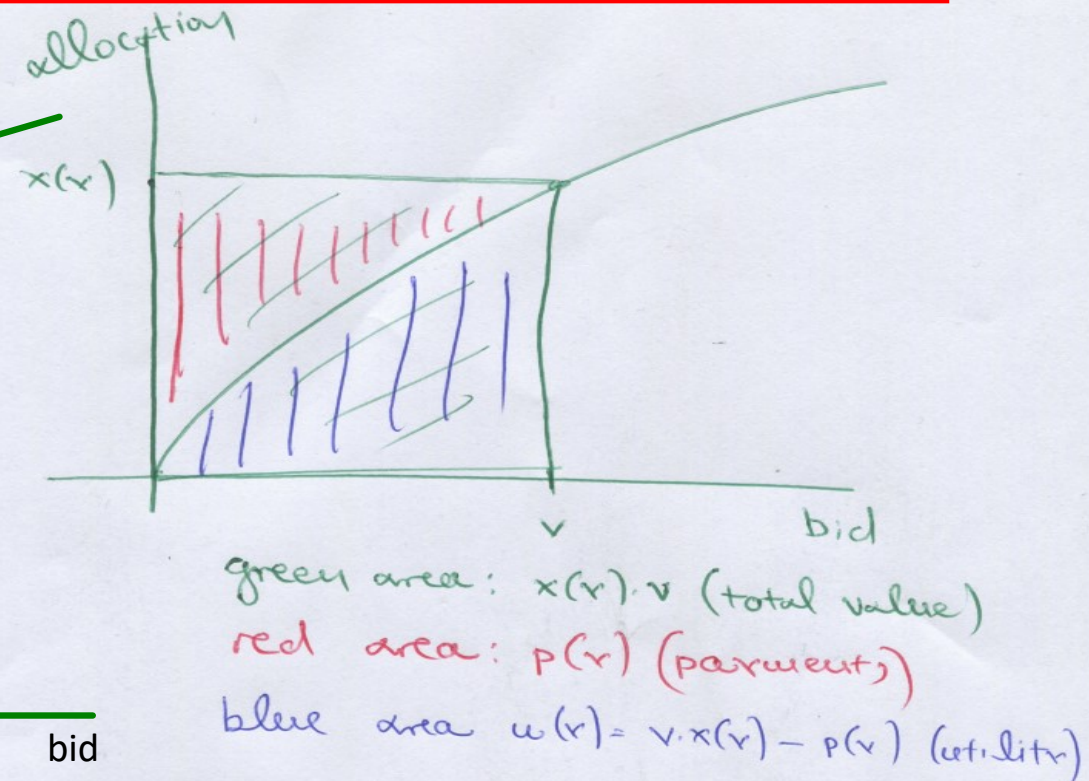 allocation
x(v)
v
bid
green area: x(v)·v (total value)
red area: p(v) (payments)
blue area u(v) = v·x(v) - p(v) (utility)
bid